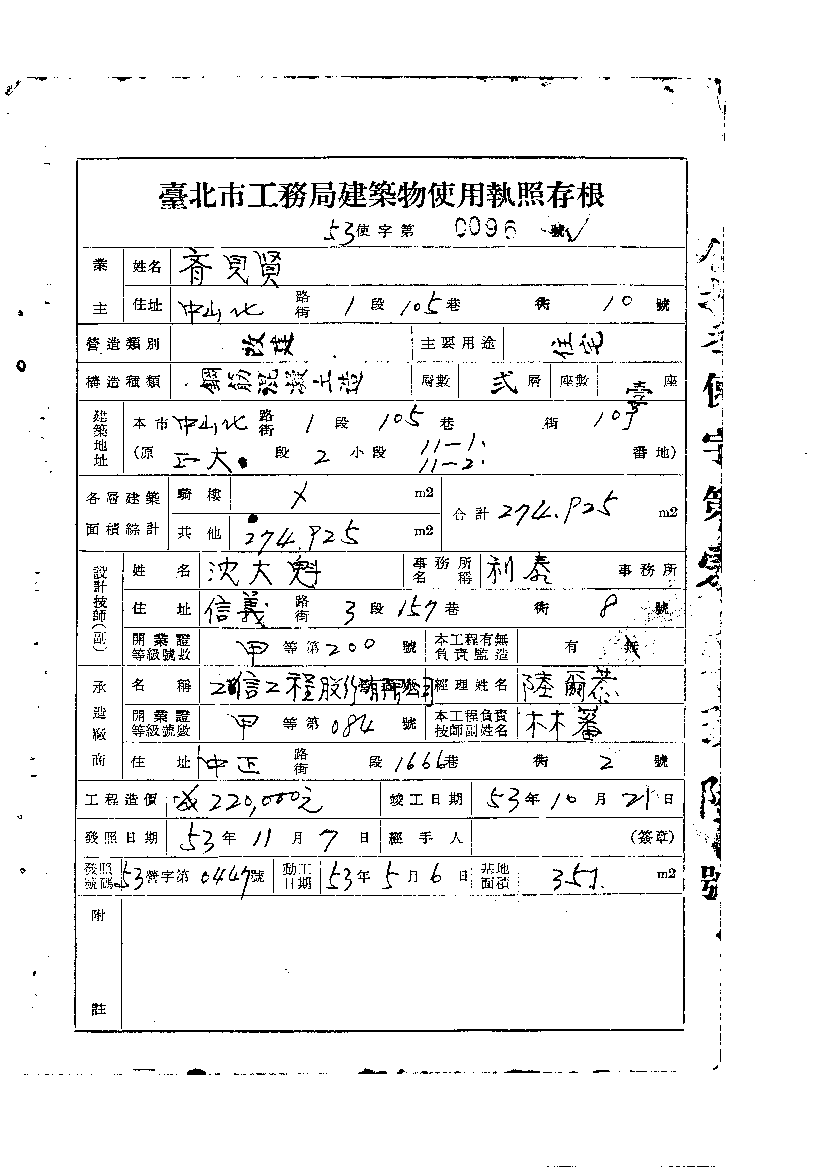 臺北市工務局建築物使用執照存根
53使字第 0096 號
業主 姓名 齊見賢
住址 中山北 路街 1 段 105 巷 衖 10 號
營造類別 改建 主要用途 住宅
構造種類 鋼筋混凝土造 層數 弍 層 座數 壹 座
建築地址 本市 中山北 路街 1 段 105 巷 衖 10號
(原 正大 段 2 小段 11-1 11-2 番地)
各層建築面積綜計 騎樓 m2 合計 274.925 m2
其他 274.925 m2
設計技師(副) 姓名 沈大魁 事務所名稱 利泰 事務所
住址 信義 路街 3 段 157 巷 衖 8 號
開業證等級號數 甲 等第 200 號 本工程有無負責監造 有 無
承造廠商 名稱 工信工程股份有限公司 經理姓名 陸爾恭
開業證等級號數 甲 等第 084 號 本工程負責技師副姓名 林蕃
住址 中正 路街 段 1666 巷 衖 2 號
工程造價 220,000元 竣工日期 53 年 10 月 21 日
發照日期 53 年 11 月 7 日 經手人 (簽章)
發照號碼 53營字第 0447 號 動工日期 53 年 5 月 6 日 基地面積 351. m2
附註